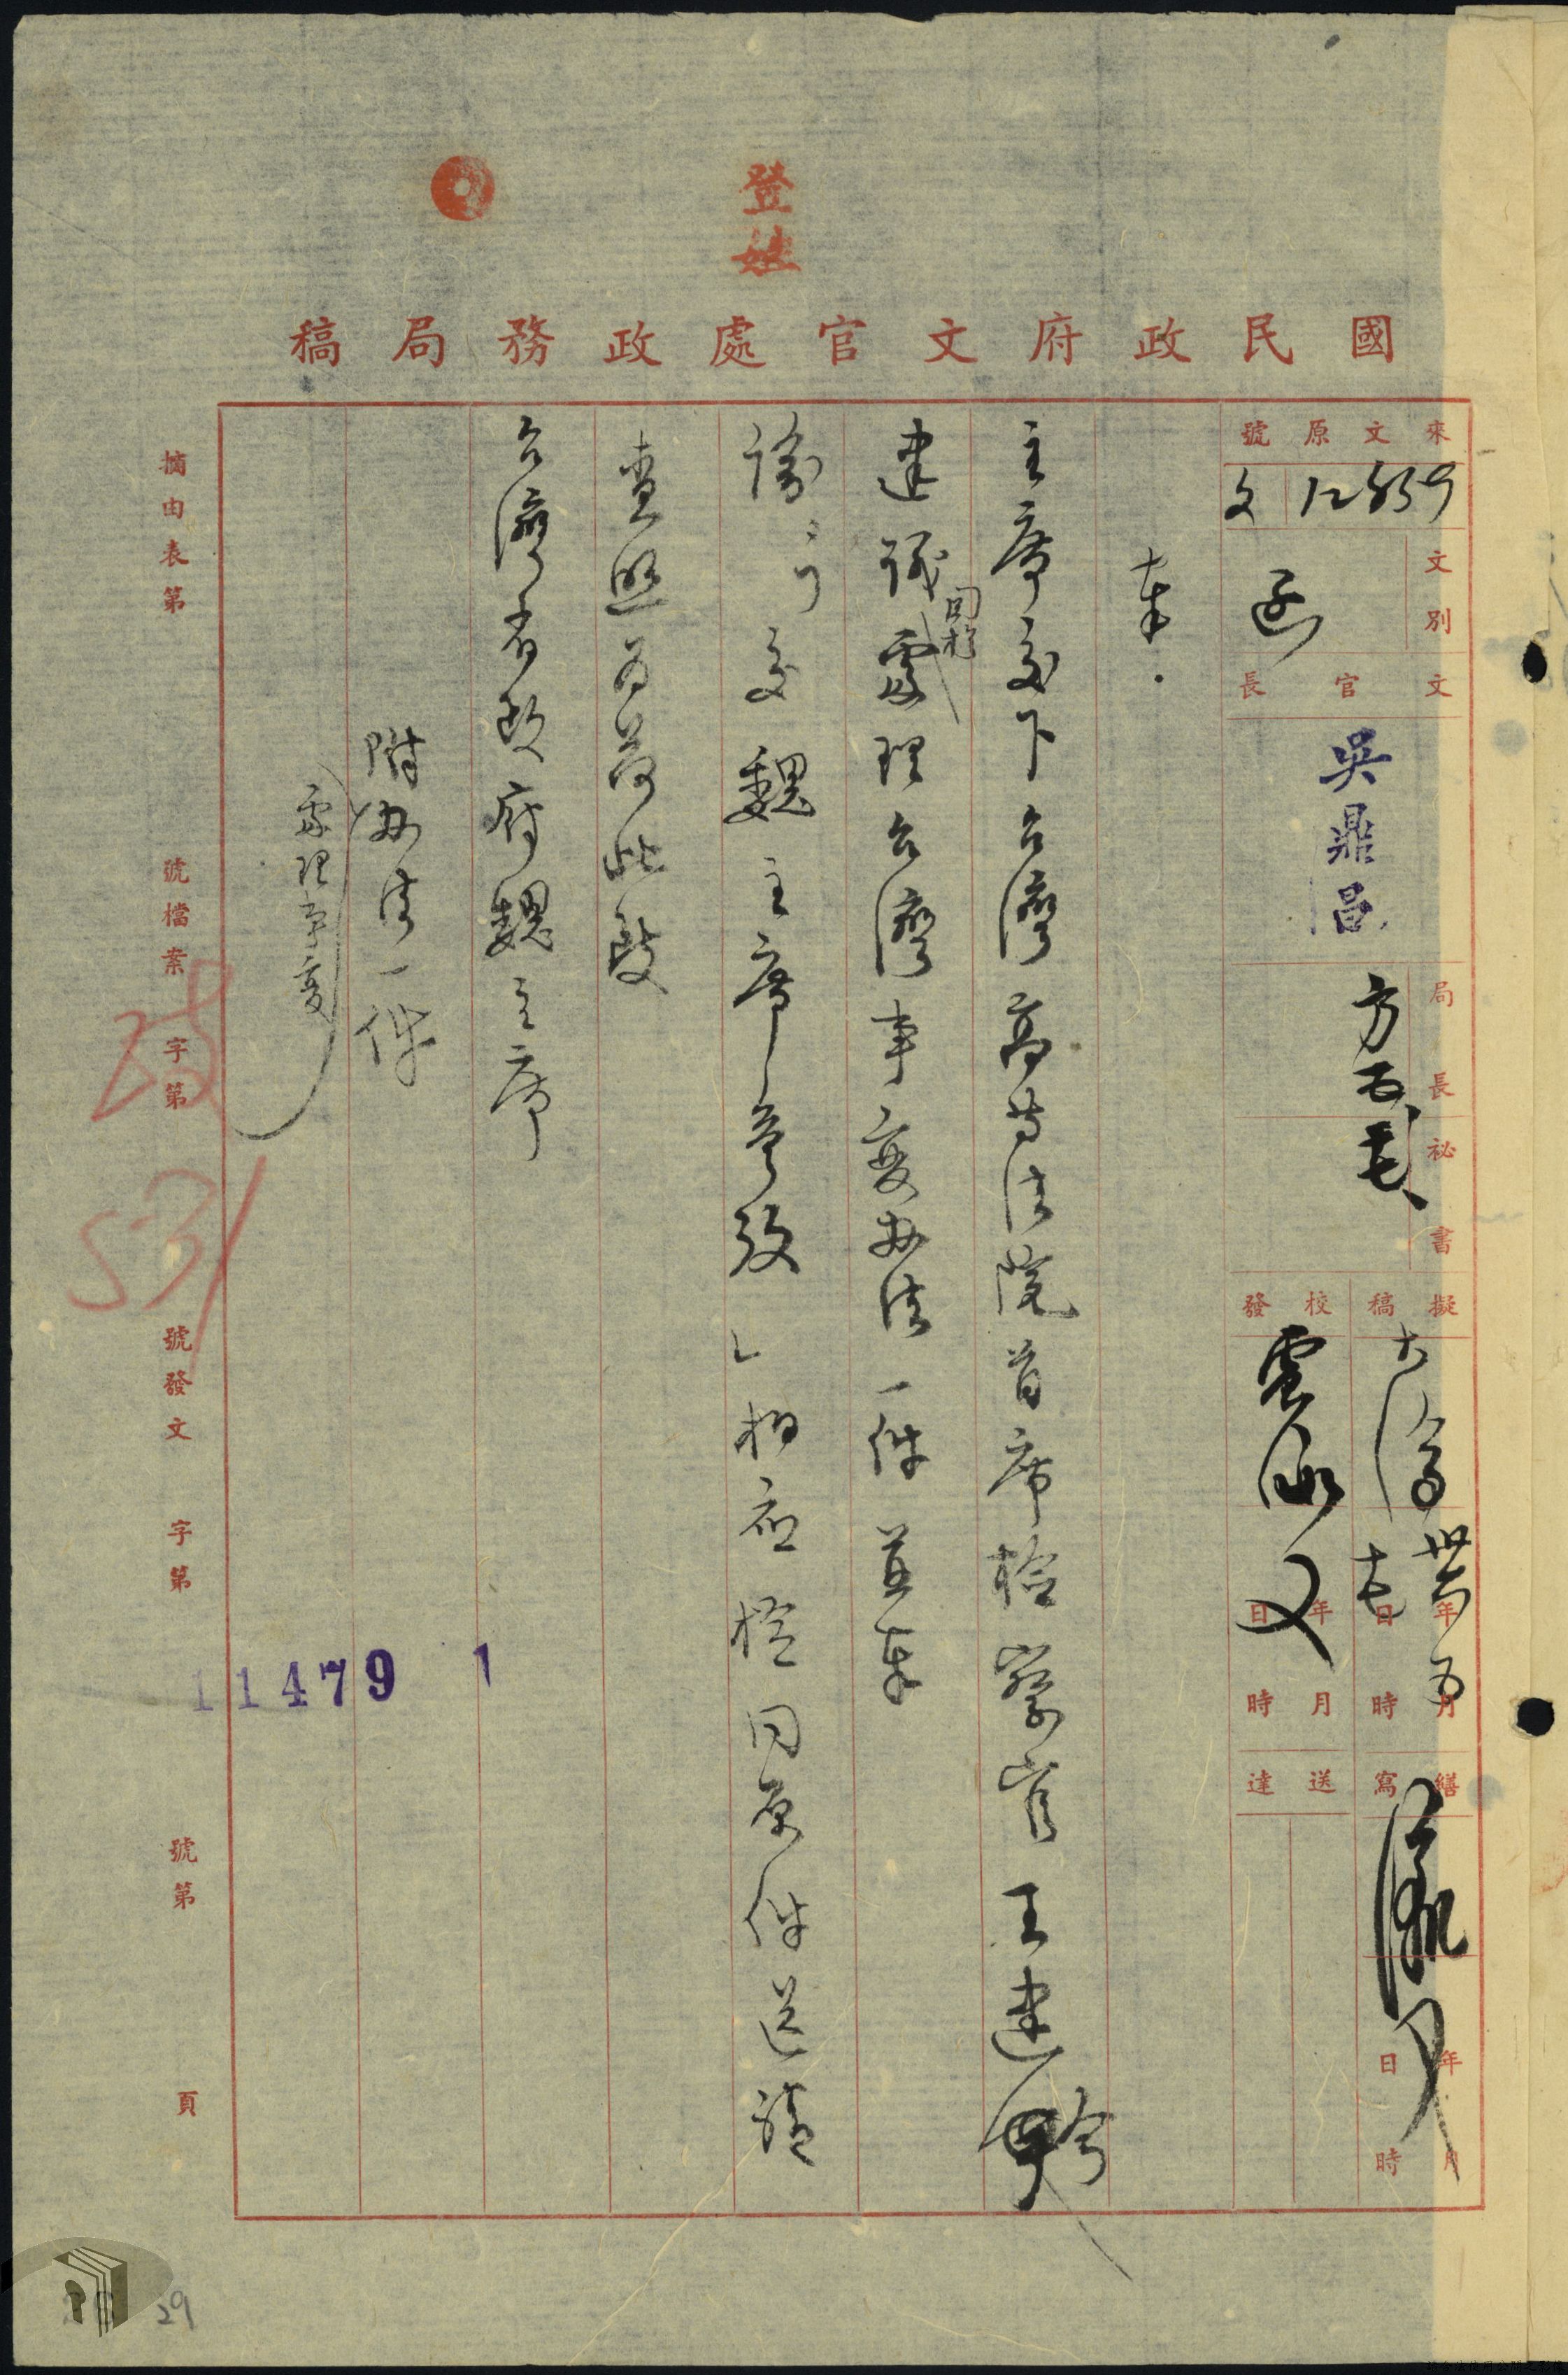 登
國民政府文官處政務局稿
來文原號
文 12859
文別
函
文官長
吳鼎昌
局長
秘書
擬稿
卅六年五月
日 時
校發
年月
日時
繕寫
年月
日時
送達
奉
主席交下台灣高等法院首席檢察官王建今
建議處理台灣事變辦法一件並奉
諭「可交魏主席參考」相應檢同原件送請
查照為荷此致
台灣省政府魏主席
附辦法一件
處理事變
摘由表第 號檔案 字第 號發文 字第 號第 頁
531
11479 1
29